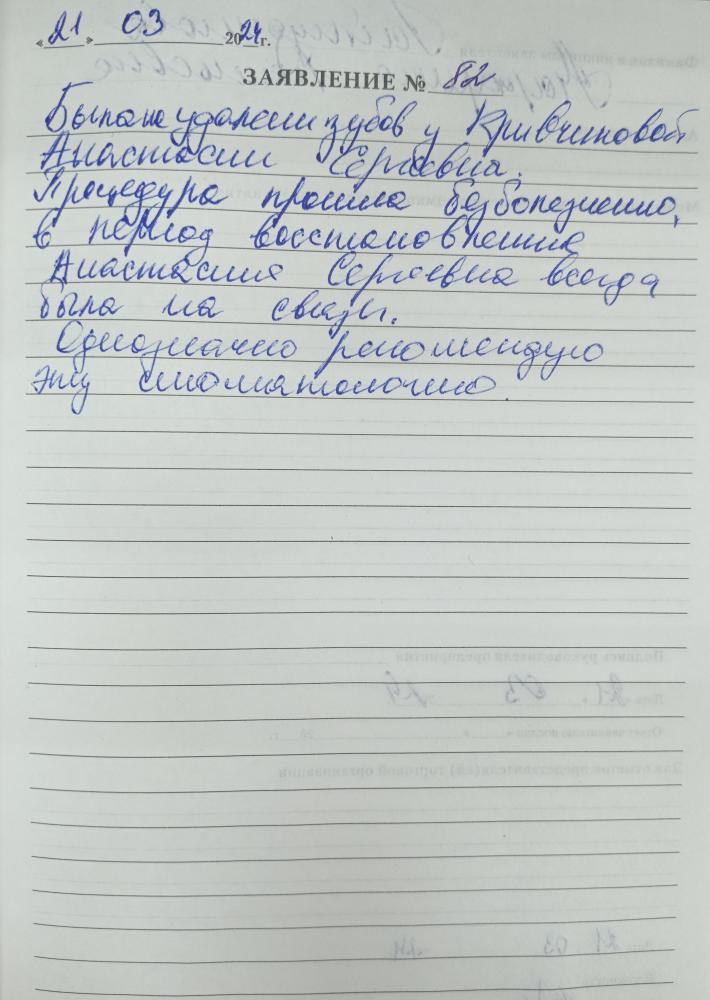 «21» 03 2024г.
ЗАЯВЛЕНИЕ № 82
Была на удалении зубов у Кривчиковой
Анастасии Сергеевна.
Процедура прошла безболезненно,
в период восстановления
Анастасия Сергеевна всегда
была на связи.
Однозначно рекомендую
эту стоматологию.